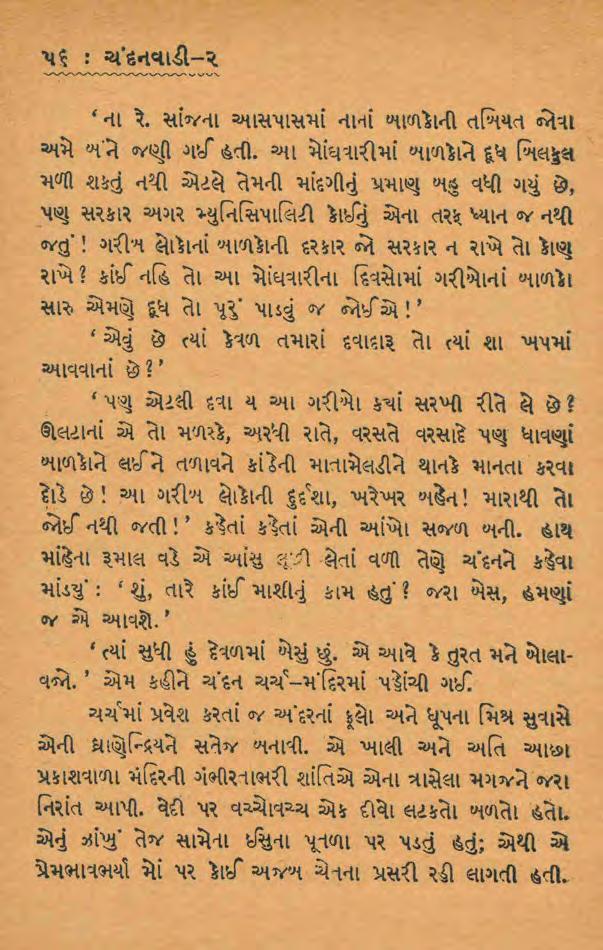 ૫૬ : ચંદનવાડી–૨
‘ના રે. સાંજના આસપાસમાં નાનાં બાળકોની તબિયત જોવા
અમે બંને જણી ગઈ હતી. આ મોંઘવારીમાં બાળકોને દૂધ બિલકુલ
મળી શકતું નથી એટલે તેમની માંદગીનું પ્રમાણ બહુ વધી ગયું છે,
પણ સરકાર અગર મ્યુનિસિપાલિટી કોઈનું એના તરફ ધ્યાન જ નથી
જતું! ગરીબ લોકોનાં બાળકોની દરકાર જો સરકાર ન રાખે તો કોણ
રાખે? કાંઈ નહિ તો આ મોંઘવારીના દિવસોમાં ગરીબોનાં બાળકો
સારુ એમણે દૂધ તો પૂરું પાડવું જ જોઈએ!’
‘એવું છે ત્યાં કેવળ તમારાં દવાદારૂ તો ત્યાં શા ખપમાં
આવવાનાં છે?’
‘પણ એટલી દવા ય આ ગરીબો ક્યાં સરખી રીતે લે છે?
ઊલટાનાં એ તો મળસ્કે, અરધી રાતે, વરસતે વરસાદે પણ ધાવણાં
બાળકોને લઈને તળાવને કાંઠેની માતામેલડીને થાનકે માનતા કરવા
દોડે છે! આ ગરીબ લોકોની દુર્દશા, ખરેખર બહેન! મારાથી તો
જોઈ નથી જતી!’ કહેતાં કહેતાં એની આંખો સજળ બની. હાથ
માંહેના રૂમાલ વડે એ આંસુ લૂછી લેતાં વળી તેણે ચંદનને કહેવા
માંડ્યું : ‘શું, તારે કાંઈ માશીનું કામ હતું? જરા બેસ, હમણાં
જ એ આવશે.’
‘ત્યાં સુધી હું દેવળમાં બેસું છું. એ આવે કે તુરત મને બોલા-
વજો.’ એમ કહીને ચંદન ચર્ચ–મંદિરમાં પહોંચી ગઈ.
ચર્ચમાં પ્રવેશ કરતાં જ અંદરનાં ફૂલો અને ધૂપના મિશ્ર સુવાસે
એની ઘ્રાણેન્દ્રિયને સતેજ બનાવી. એ ખાલી અને અતિ આછા
પ્રકાશવાળા મંદિરની ગંભીરતાભરી શાંતિએ એના ત્રાસેલા મગજને જરા
નિરાંત આપી. વેદી પર વચ્ચોવચ્ચ એક દીવો લટકતો બળતો હતો.
એનું ઝાંખું તેજ સામેના ઈસુના પૂતળા પર પડતું હતું; એથી એ
પ્રેમભાવભર્યા મોં પર કોઈ અજબ ચેતના પ્રસરી રહી લાગતી હતી.